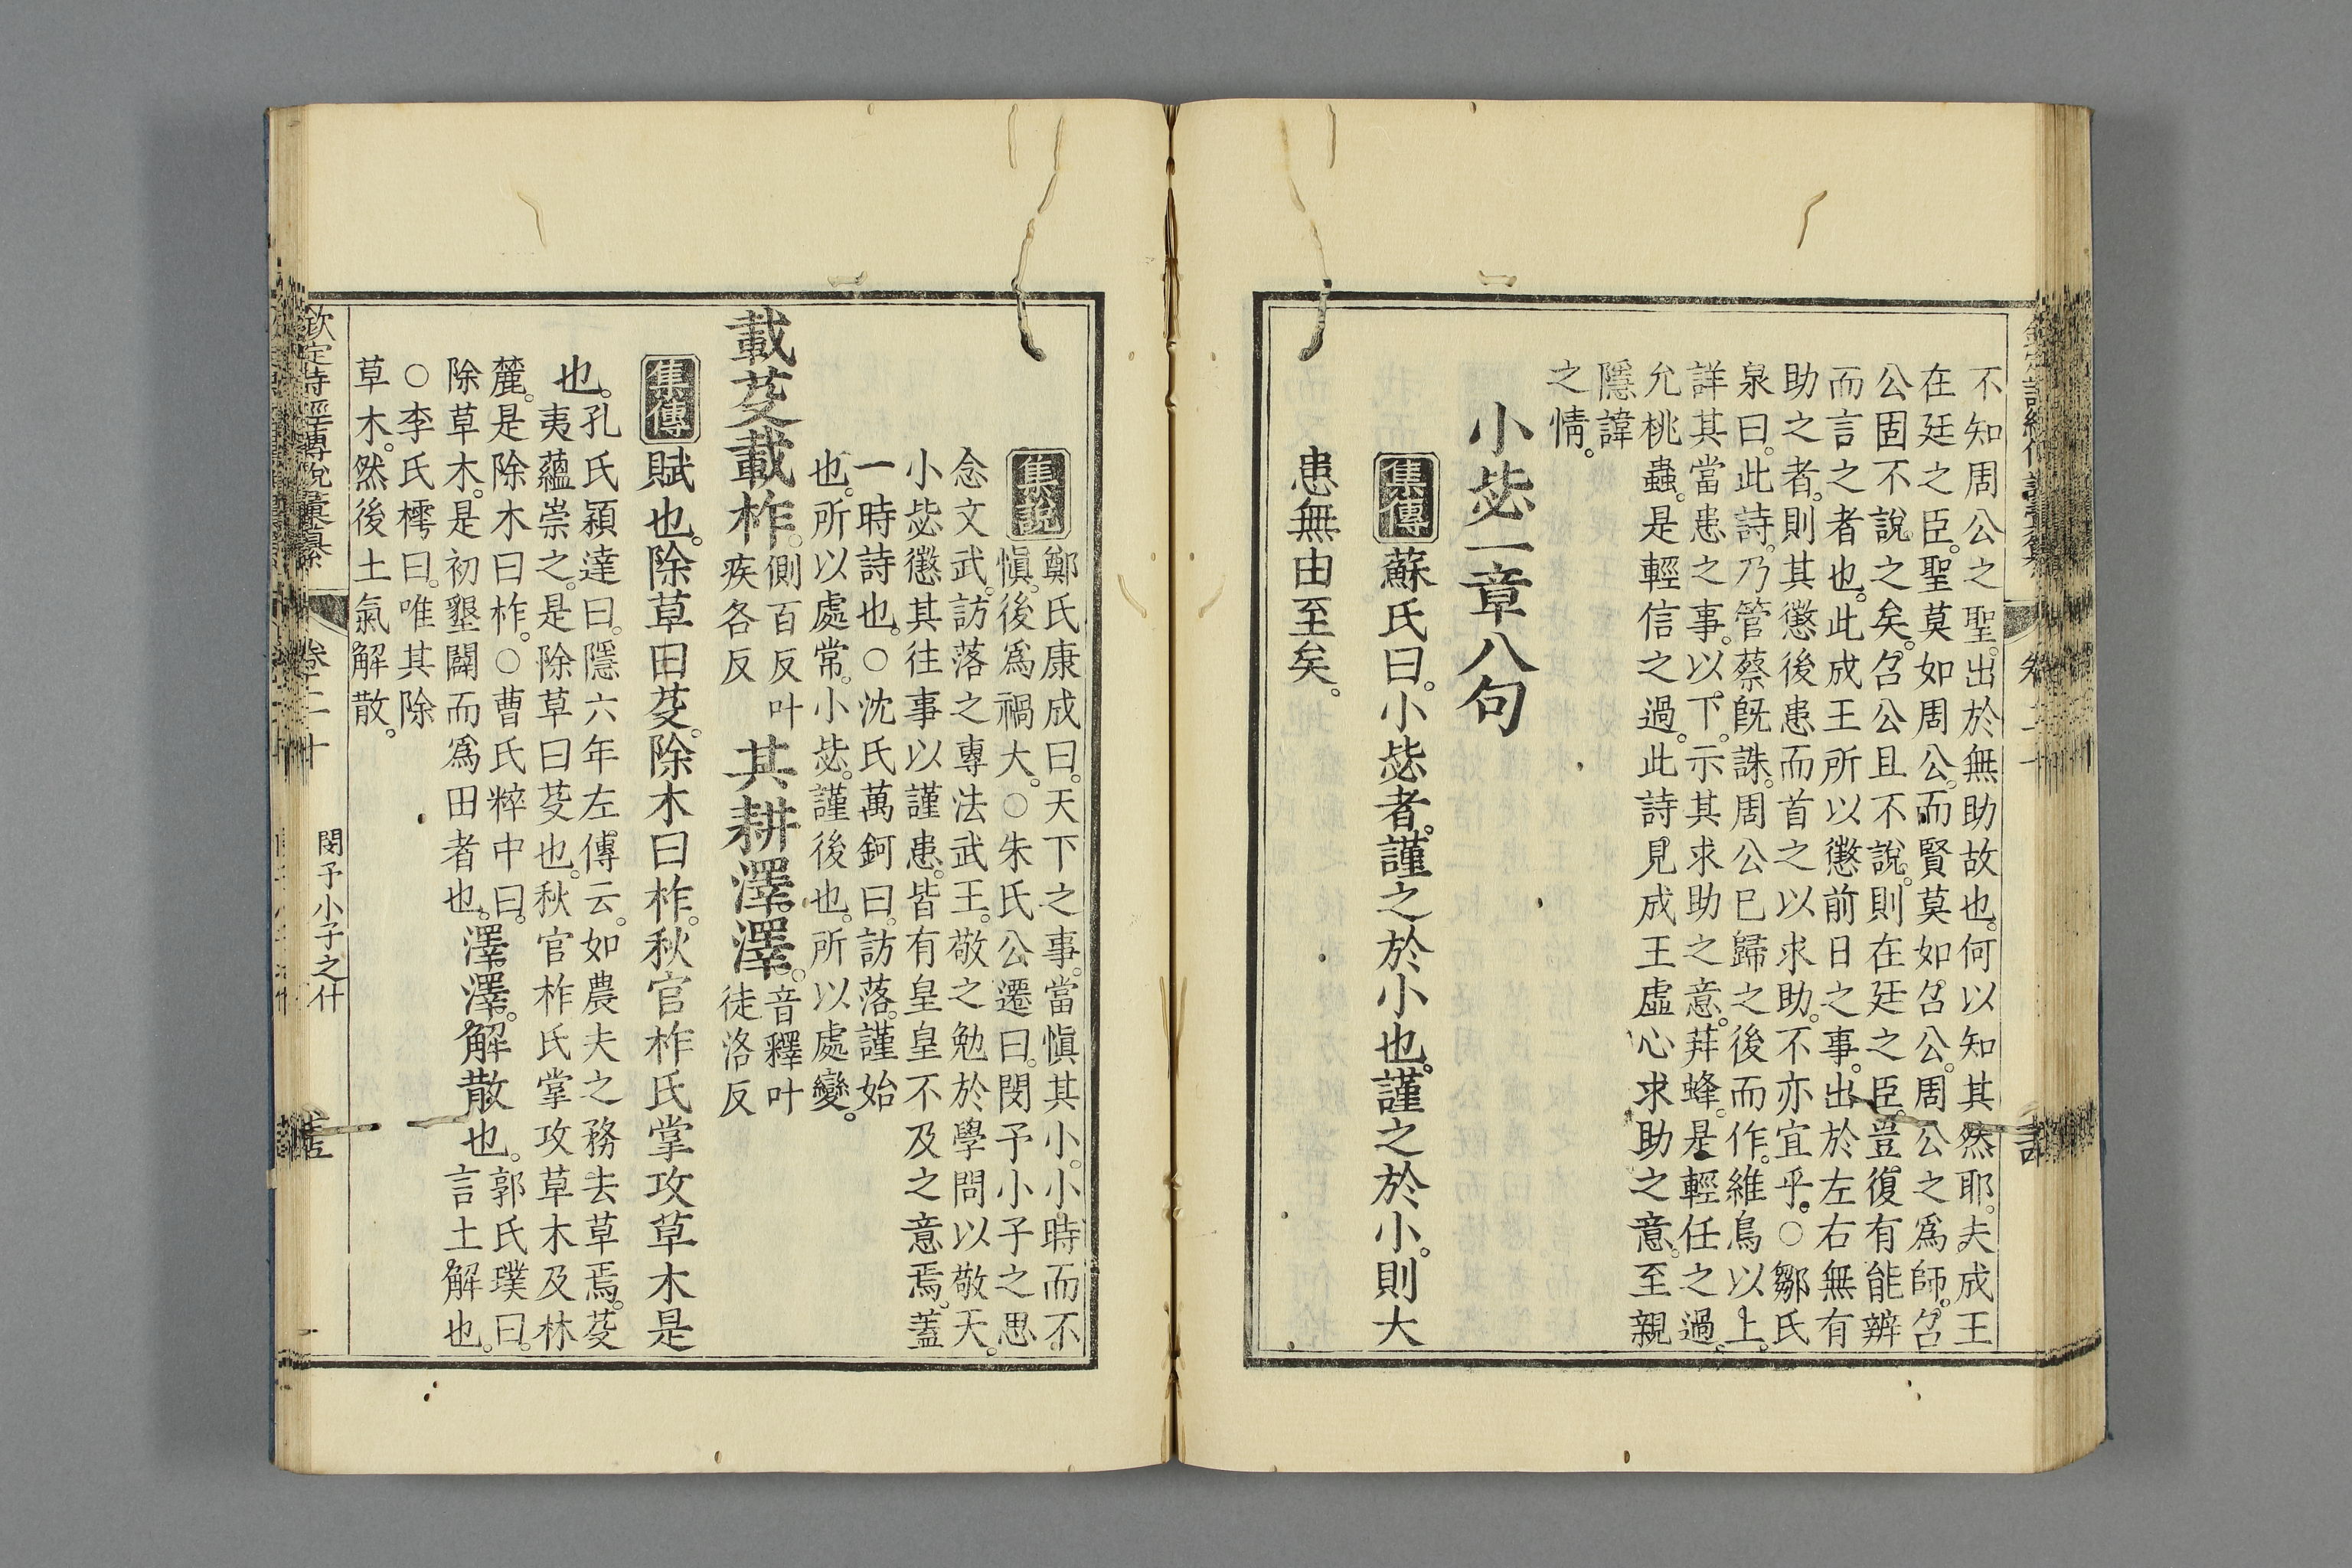 不知周公之聖。出於無助故也。何以知其然耶。夫成王
在廷之臣。聖莫如周公。而賢莫如召公。周公之爲師。召
公固不說之矣。召公且不說。則在廷之臣。豈復有能辨
而言之者也。此成王所以懲前日之事。出於左右無有
助之者。則其懲後患而首之以求助。不亦宜乎。○鄒氏
泉曰。此詩。乃管蔡旣誅。周公已歸之後而作。維鳥以上。
詳其當患之事。以下。示其求助之意。荓蜂。是輕任之過。
允桃蟲。是輕信之過。此詩見成王虛心求助之意。至親
隱諱
之情。
小毖一章八句
集傳 蘇氏曰。小毖者。謹之於小也。謹之於小。則大
患無由至矣。
集說 鄭氏康成曰。天下之事。當愼其小。小時而不
愼。後爲禍大。○朱氏公遷曰。閔予小子之思
念文武。訪落之專法武王。敬之勉於學問以敬天。
小毖懲其往事以謹患。皆有皇皇不及之意焉。蓋
一時詩也。○沈氏萬鈳曰。訪落。謹始
也。所以處常。小毖。謹後也。所以處變。
載芟載柞。側百反叶疾各反 其耕澤澤。音釋叶徒洛反
集傳 賦也。除草曰芟。除木曰柞。秋官柞氏掌攻草木是
也。孔氏穎達曰。隱六年左傳云。如農夫之務去草焉。芟
夷蘊崇之。是除草曰芟也。秋官柞氏掌攻草木及林
麓。是除木曰柞。○曹氏粹中曰。
除草木。是初墾闢而爲田者也。澤澤。解散也。郭氏璞曰。
言土解也。
○李氏樗曰。唯其除
草木。然後土氣解散。
欽定詩經傳說彙纂 卷二十 閔予小子之什